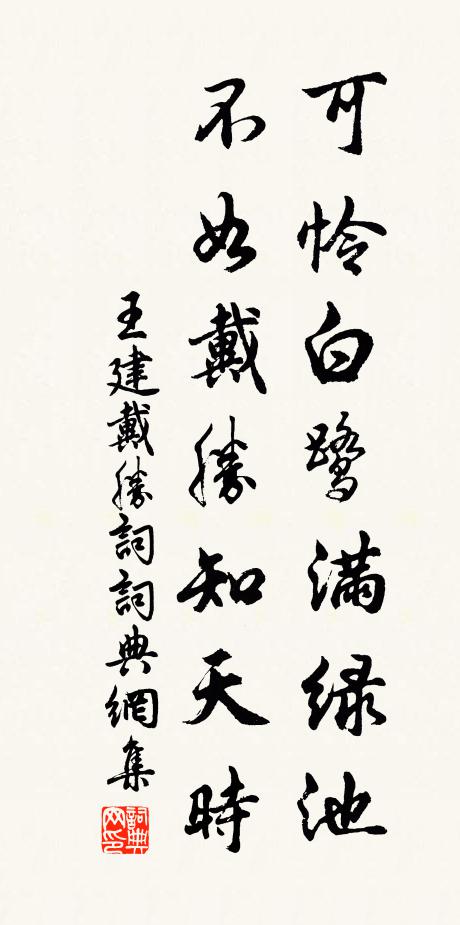 可怜白鹭满绿池
不如戴勝知天時
王建戴勝詞詞典網集
詞典網印